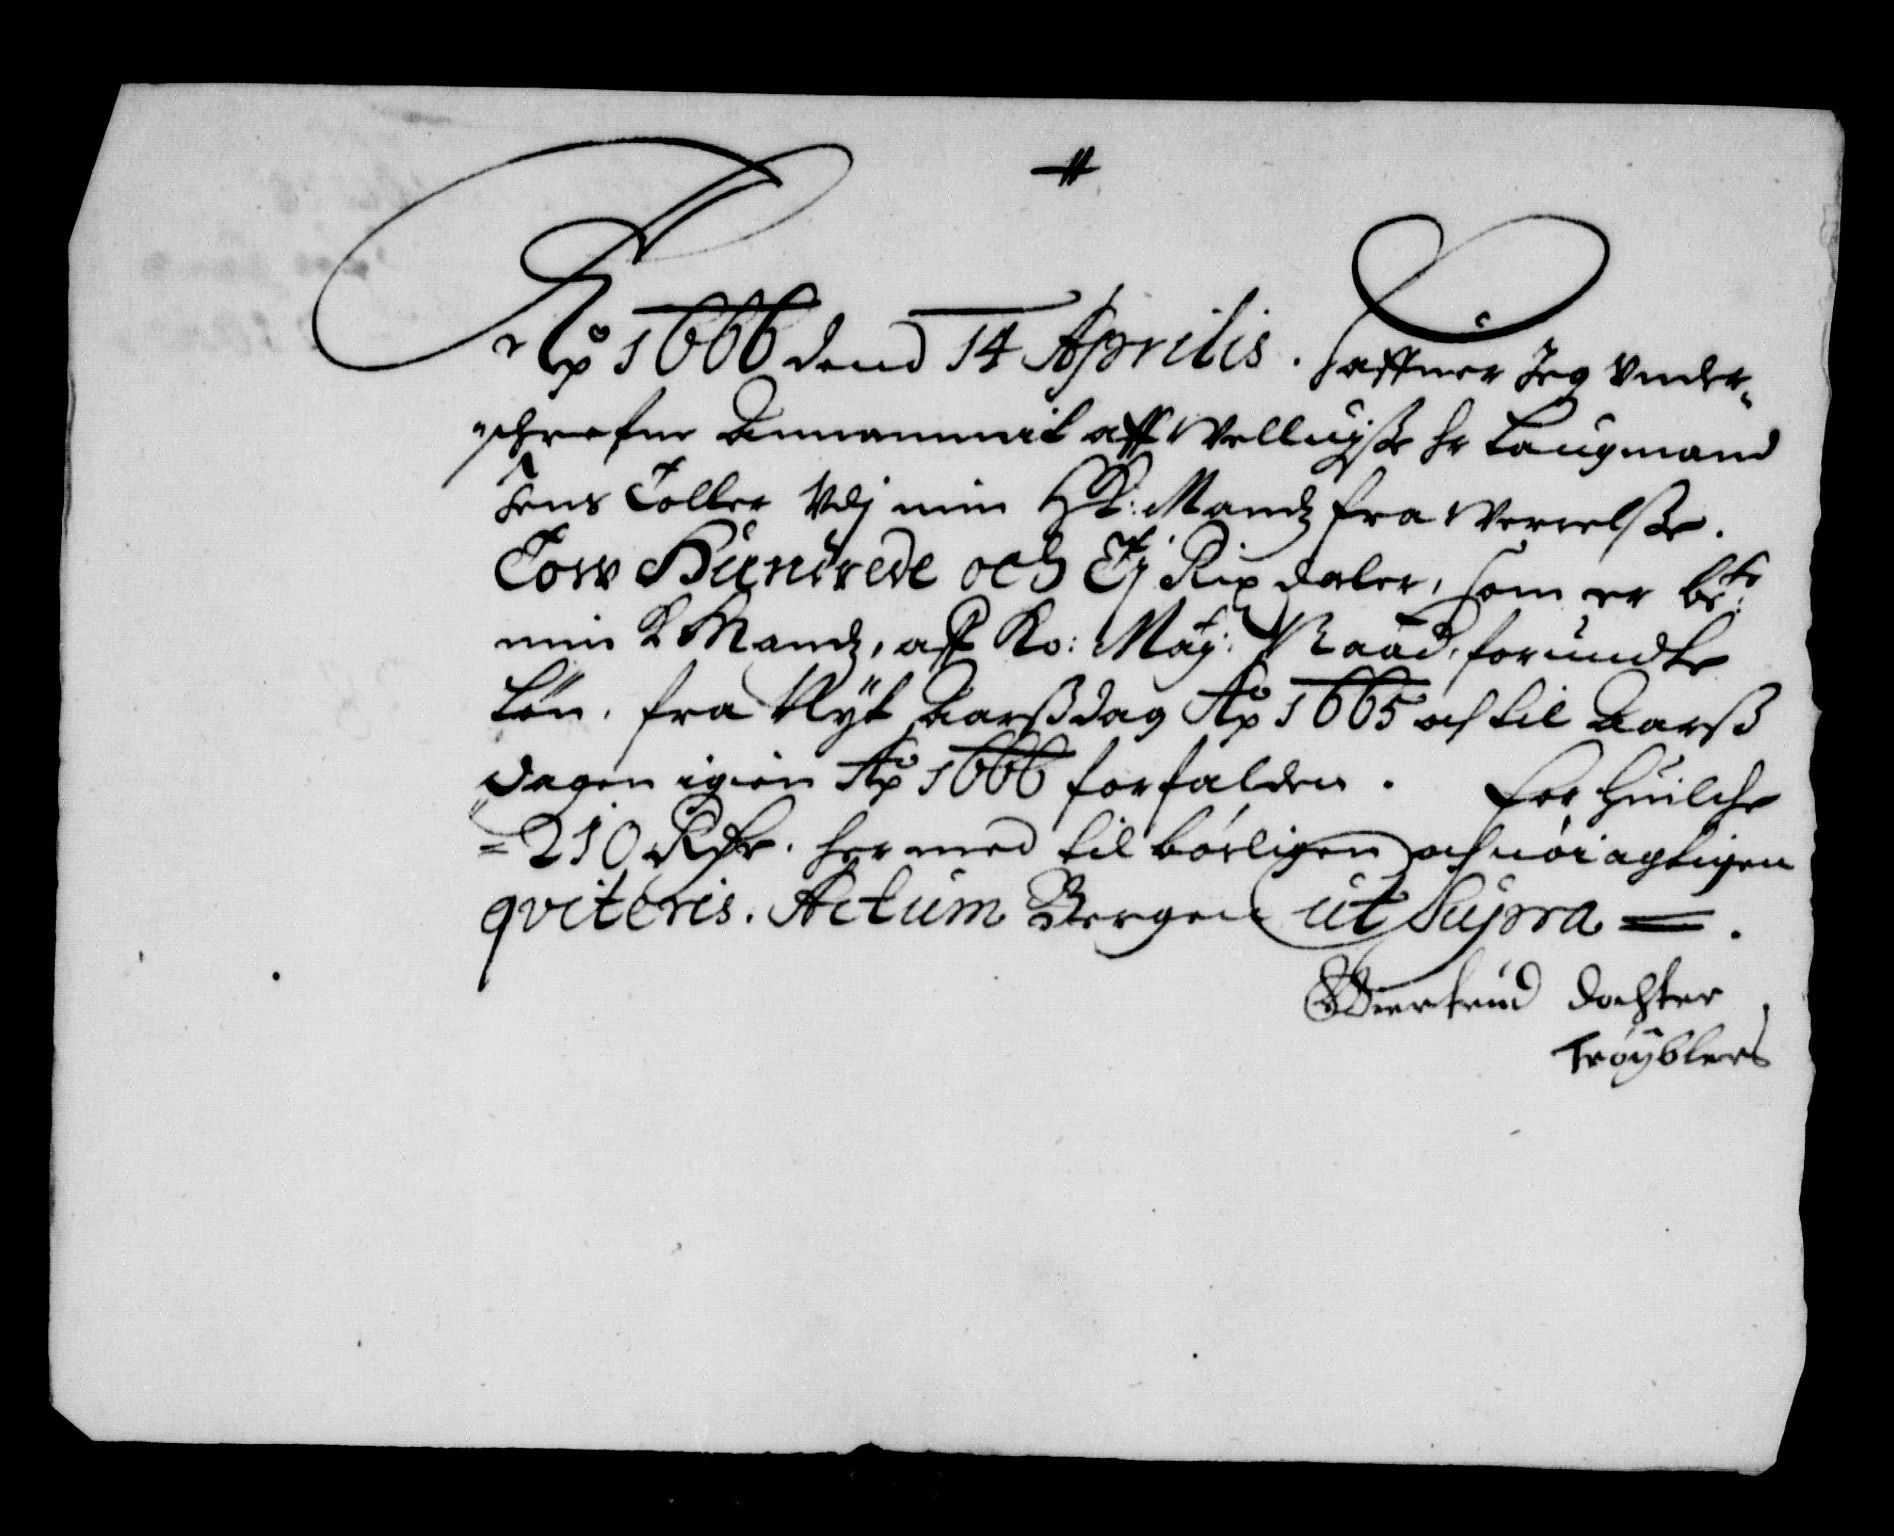 Ao 1666 dend 14 Aprilis. haffuer Jeg Vnder-
schrefne Annammit aff Velluise Hr Laugmand
Jens Toller Vdj min Sl: Mandz fra Verelße.
Tow Hundrede och Tj Rix daler, som er be:te
min S Mandz, aff Ko: May: Naad, forundte
Løn, fra Nyt Aarßdag Ao 1665 och til Aarß
dagen igien Ao 1666 forfalden. For huilche
210 Rdr. her med tilbørligen och nøiagtigen
qviteris. Actum Bergen ut Supra
Giertrud dochter
Trøyblers